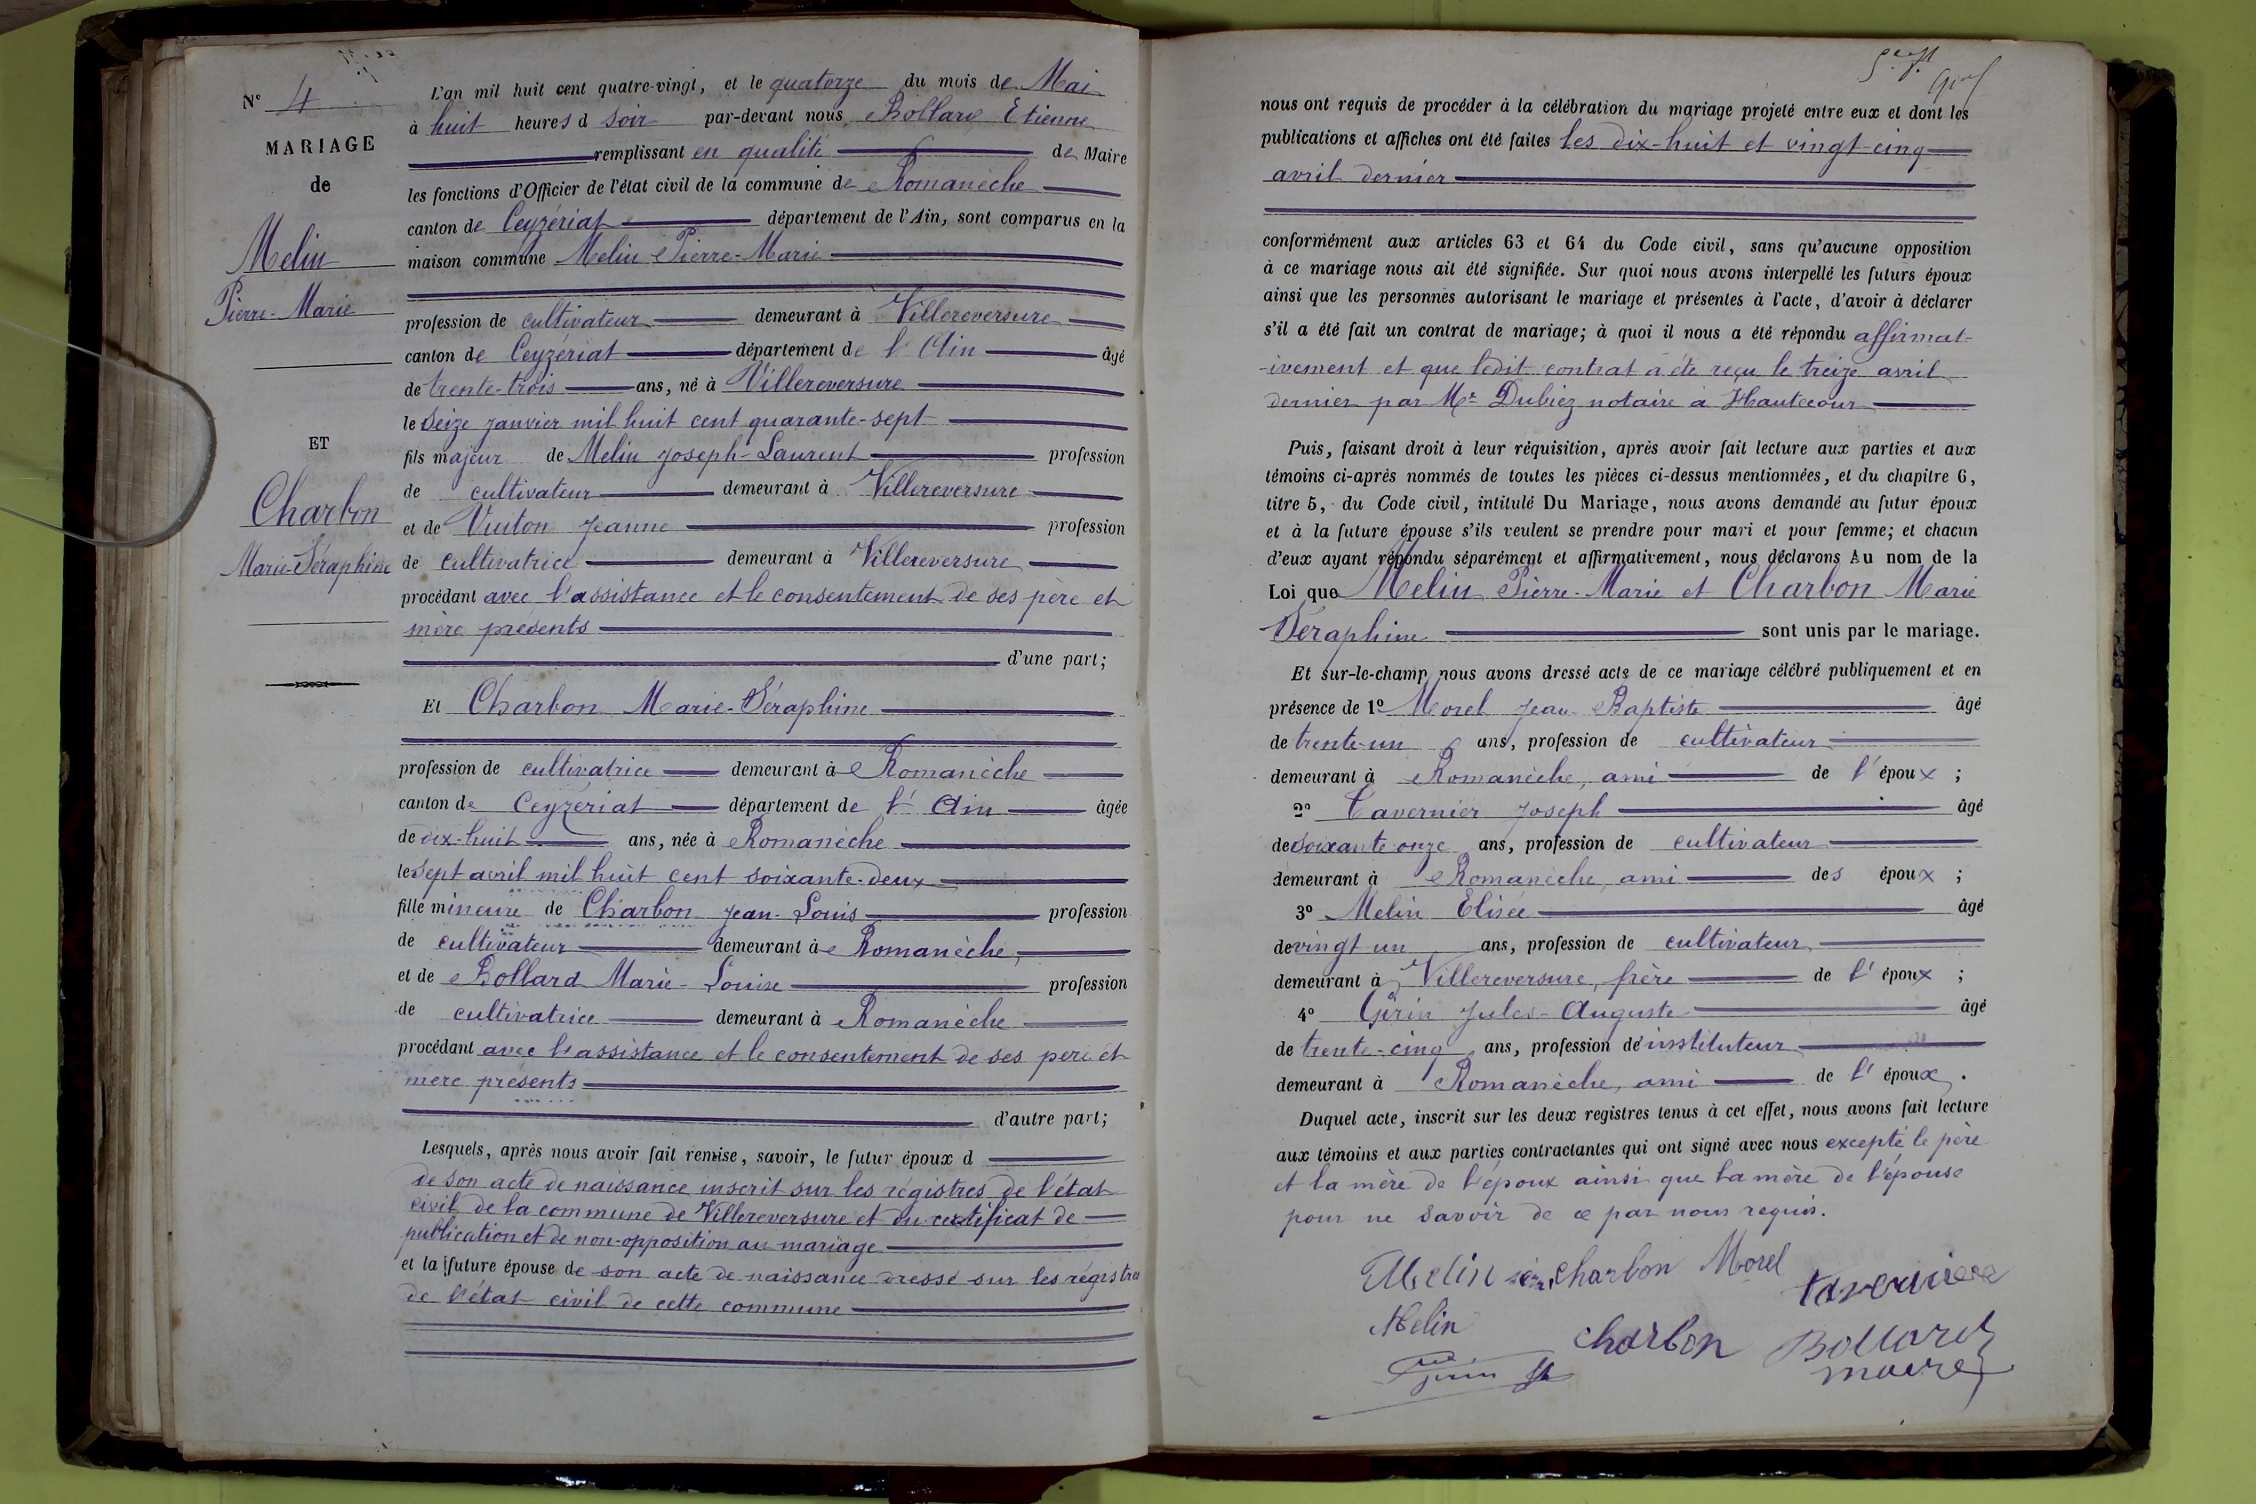 N° 4
MARIAGE
de
Melin
Pierre-Marie
ET
Charbon
Marie-Séraphine
L'an mil huit cent quatre-vingt, et le quatorze du mois de Mai
à huit heures d soir par-devant nous Bollard Etienne
remplissant en qualité de Maire
les fonctions d'Officier de l'état civil de la commune de Romanèche
canton de Ceyzériat département de l'Ain, sont comparus en la
maison commune Melin Pierre-Marie
profession de cultivateur demeurant à Villereversure
canton de Ceyzériat département de l'Ain âgé
de trente-trois ans, né à Villereversure
le seize janvier mil huit cent quarante-sept
fils majeur de Melin Joseph-Laurent profession
de cultivateur demeurant à Villereversure
et de Vuiton Jeanne profession
de cultivatrice demeurant à Villereversure
procédant avec l'assistance et le consentement de ses père et
mère présents
d'une part;
Et Charbon Marie-Séraphine
profession de cultivatrice demeurant à Romanèche
canton de Ceyzériat département de l'Ain âgée
de dix-huit ans, née à Romanèche
le sept avril mil huit cent soixante-deux
fille mineure de Charbon Jean-Louis profession
de cultivateur demeurant à Romanèche,
et de Bollard Marie-Louise profession
de cultivatrice demeurant à Romanèche
procédant avec l'assistance et le consentement de ses père et
mère présents
d'autre part;
Lesquels, après nous avoir fait remise, savoir, le futur époux d
de son acte de naissance inscrit sur les régistres de l'état
civil de la commune de Villereversure et du certificat de
publication et de non-opposition au mariage
et la future épouse de son acte de naissance dressé sur les régistres
de l'état civil de cette commune
nous ont requis de procéder à la célébration du mariage projeté entre eux et dont les
publications et affiches ont été faites les dix-huit et vingt-cinq
avril dernier
conformément aux articles 63 et 64 du Code civil, sans qu'aucune opposition
à ce mariage nous ait été signifiée. Sur quoi nous avons interpellé les futurs époux
ainsi que les personnes autorisant le mariage et présentes à l'acte, d'avoir à déclarer
s'il a été fait un contrat de mariage; à quoi il nous a été répondu affirmat-
-ivement et que ledit contrat a été reçu le treize avril
dernier par Mr Dubiez notaire à Hautecour
Puis, faisant droit à leur réquisition, après avoir fait lecture aux parties et aux
témoins ci-après nommés de toutes les pièces ci-dessus mentionnées, et du chapitre 6,
titre 5, du Code civil, intitulé Du Mariage, nous avons demandé au futur époux
et à la future épouse s'ils veulent se prendre pour mari et pour femme; et chacun
d'eux ayant répondu séparément et affirmativement, nous déclarons Au nom de la
Loi que Melin Pierre-Marie et Charbon Marie
Séraphine sont unis par le mariage.
Et sur-le-champ nous avons dressé acte de ce mariage célébré publiquement et en
présence de 1° Morel Jean-Baptiste âgé
de trente-un ans, profession de cultivateur
demeurant à Romanèche, ami de l'époux ;
2° Tavernier Joseph âgé
de soixante-onze ans, profession de cultivateur
demeurant à Romanèche, ami des époux ;
3° Melin Elisée âgé
de vingt un ans, profession de cultivateur
demeurant à Villereversure, frère de l'époux ;
4° Girin Jules-Auguste âgé
de trente-cinq ans, profession de instituteur
demeurant à Romanèche, ami de l'époux.
Duquel acte, inscrit sur les deux registres tenus à cet effet, nous avons fait lecture
aux témoins et aux parties contractantes qui ont signé avec nous excepté le père
et la mère de l'époux ainsi que la mère de l'épouse
pour ne savoir de ce par nous requis.
Melin Charbon Morel
tavernier
Melin
Charbon Bollard
maire
Girin